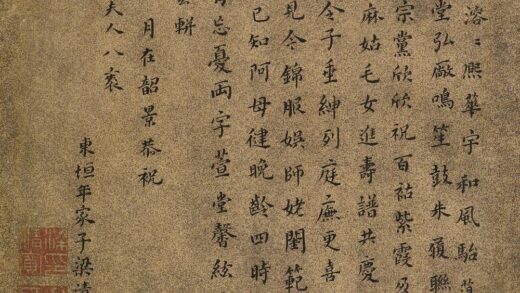 溶〻熙華宇和風駘
堂弘厰鳴笙鼓朱履聯
宗黨欣欣祝百祜紫霞
麻姑毛女進壽譜共慶
令子垂紳列庭廡更喜
見今錦服娛師姥閨範
已知阿母健晚齡四時
忘憂両字萱堂馨絃
軿
月在韶景恭祝
夫人八袠
東垣年家子梁清